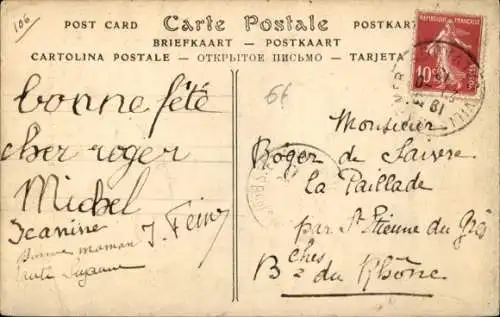 106
POST CARD Carte Postale POSTKARTE
BRIEFKAART — POSTKAART
CARTOLINA POSTALE — ОТКРЫТОЕ ПИСЬМО — TARJETA
RÉPUBLIQUE FRANÇAISE
10
bonne fête
cher roger
Michel
Jeanine
Bonne maman
tante Suzanne
66
Monsieur
Roger de
La Paillade
par St Etienne du Grès
Bches du Rhône